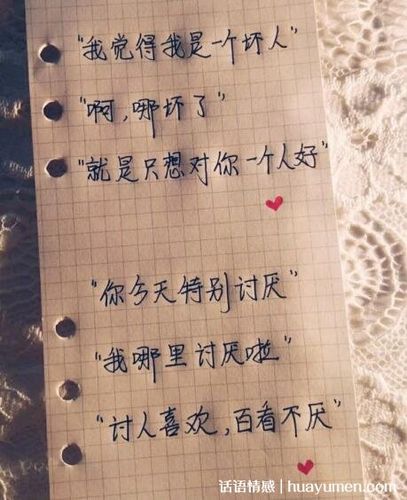 “我觉得我是一个坏人”
“啊,哪坏了”
“就是只想对你一个人好”
“你今天特别讨厌”
“我哪里讨厌啦”
“讨人喜欢,百看不厌”
话语情感 | huayumen.com